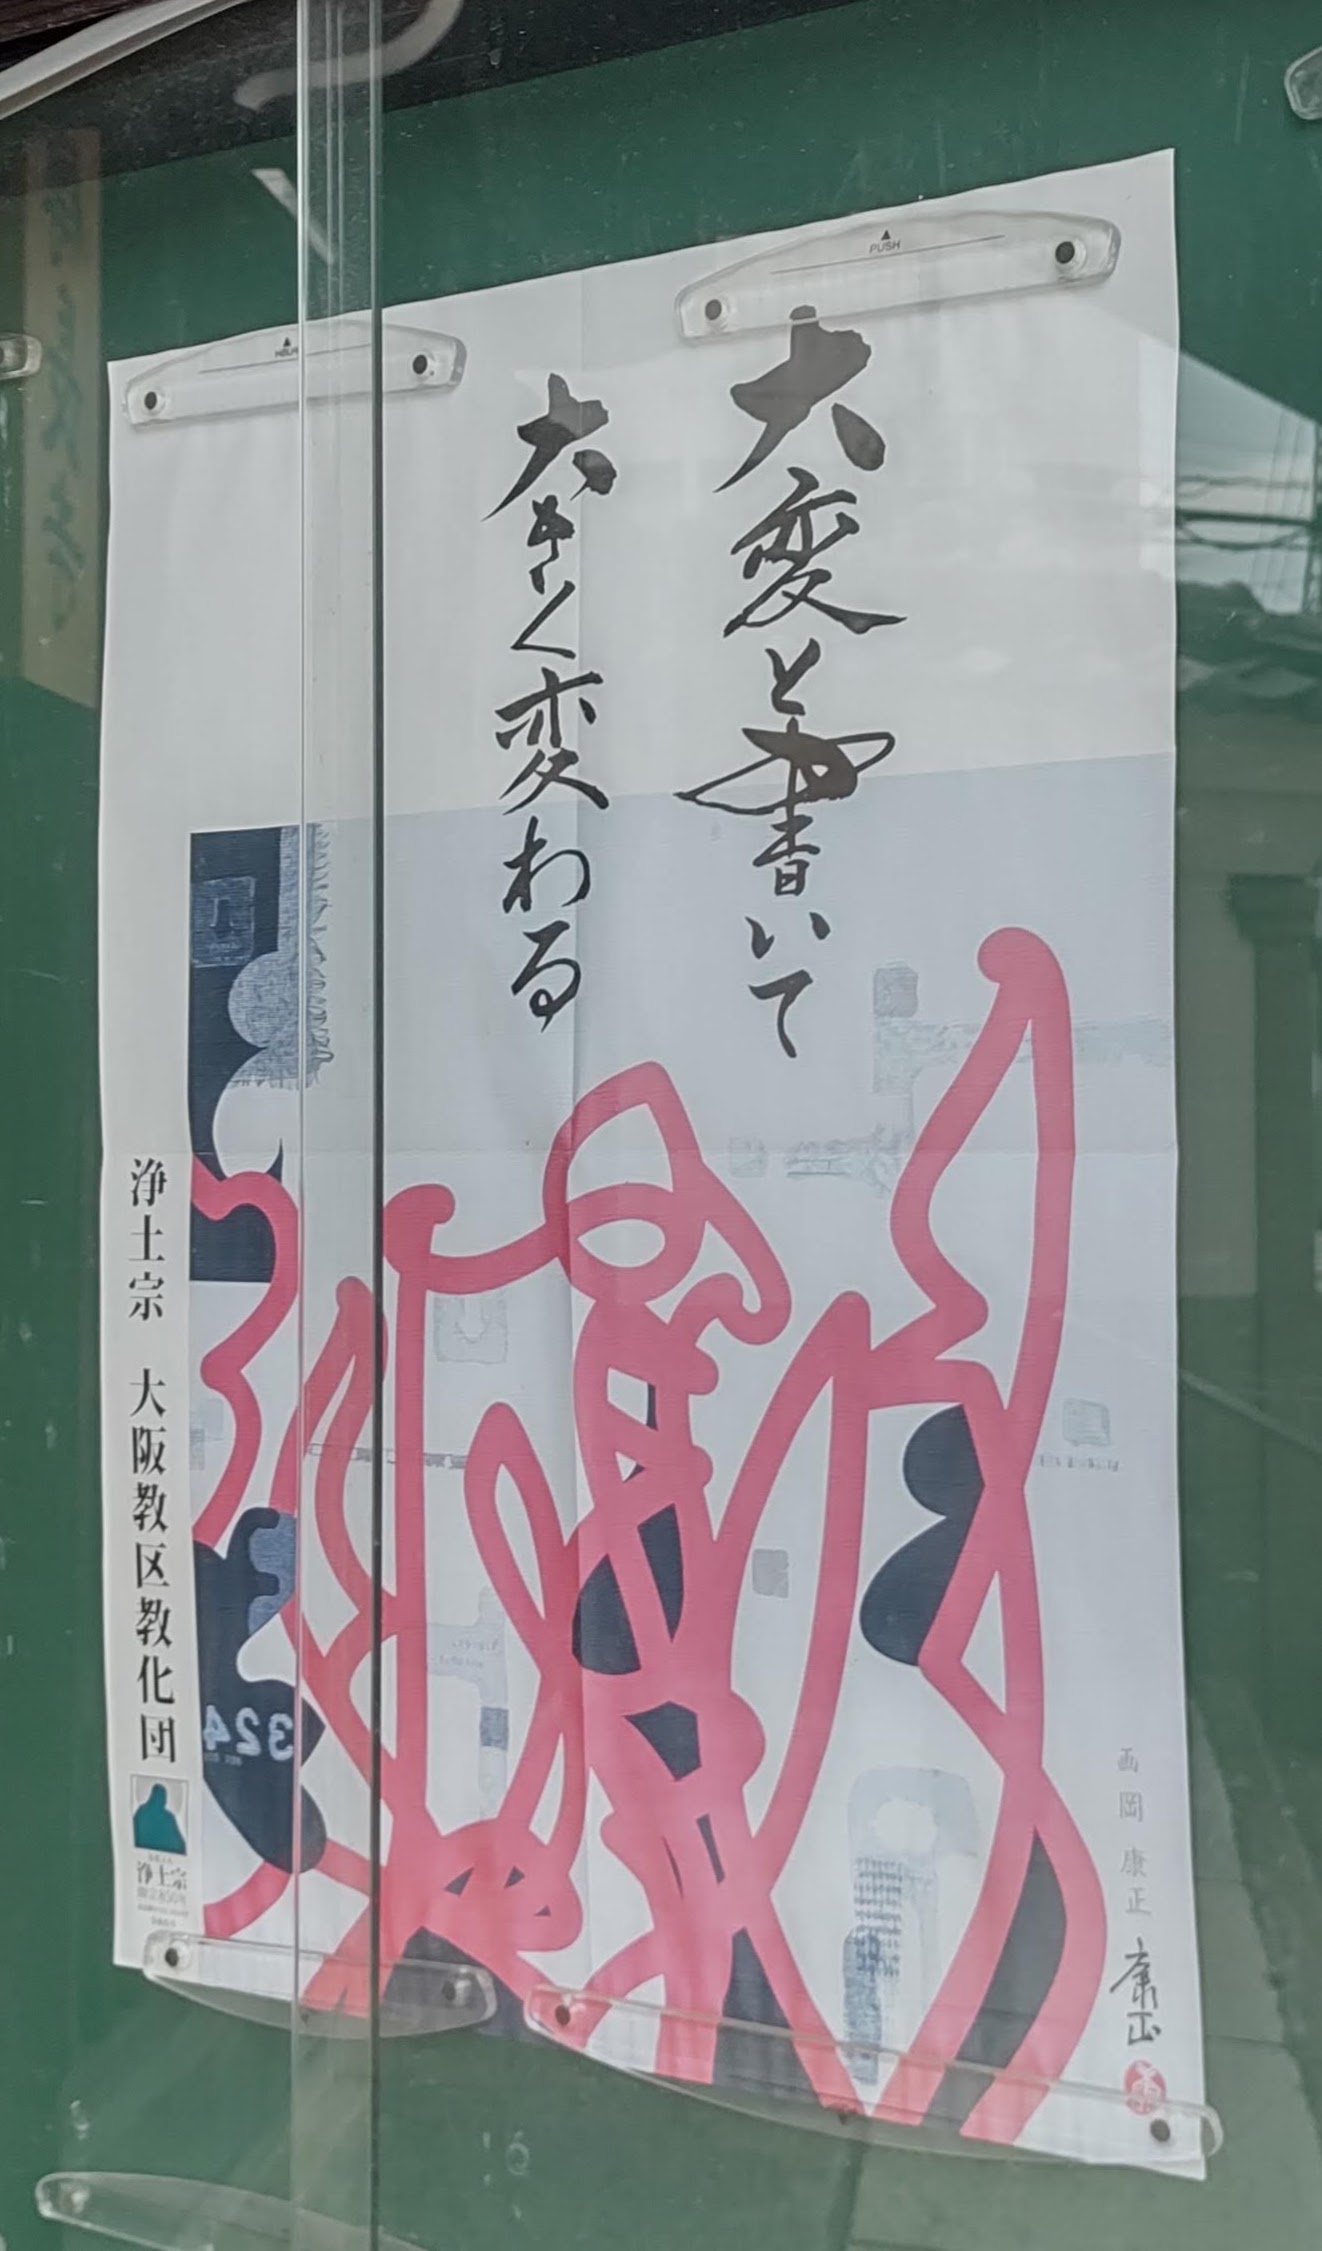 大変と書いて
大きく変わる
浄土宗 大阪教区教化団
西岡康正
康正
浄土宗
PUSH
PUSH
324